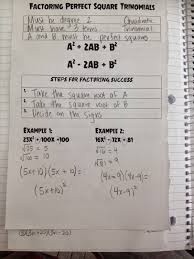 FACTORING PERFECT SQUARE TRINOMIALS
Must be degree 2 Quadratic
Must have 3 terms Trinomial
A and B must be perfect squares
A² + 2AB + B²
A² - 2AB + B²
STEPS FOR FACTORING SUCCESS
1. Take the square root of A
2. Take the square root of B
3. Decide on the signs
EXAMPLE 1: EXAMPLE 2:
25X² + 100X + 100 16X² - 72X + 81
√25 = 5 √16 = 4
√100 = 10 √81 = 9
(5x+10)(5x+10)= (4x-9)(4x-9)=
(5x+10)² (4x-9)²